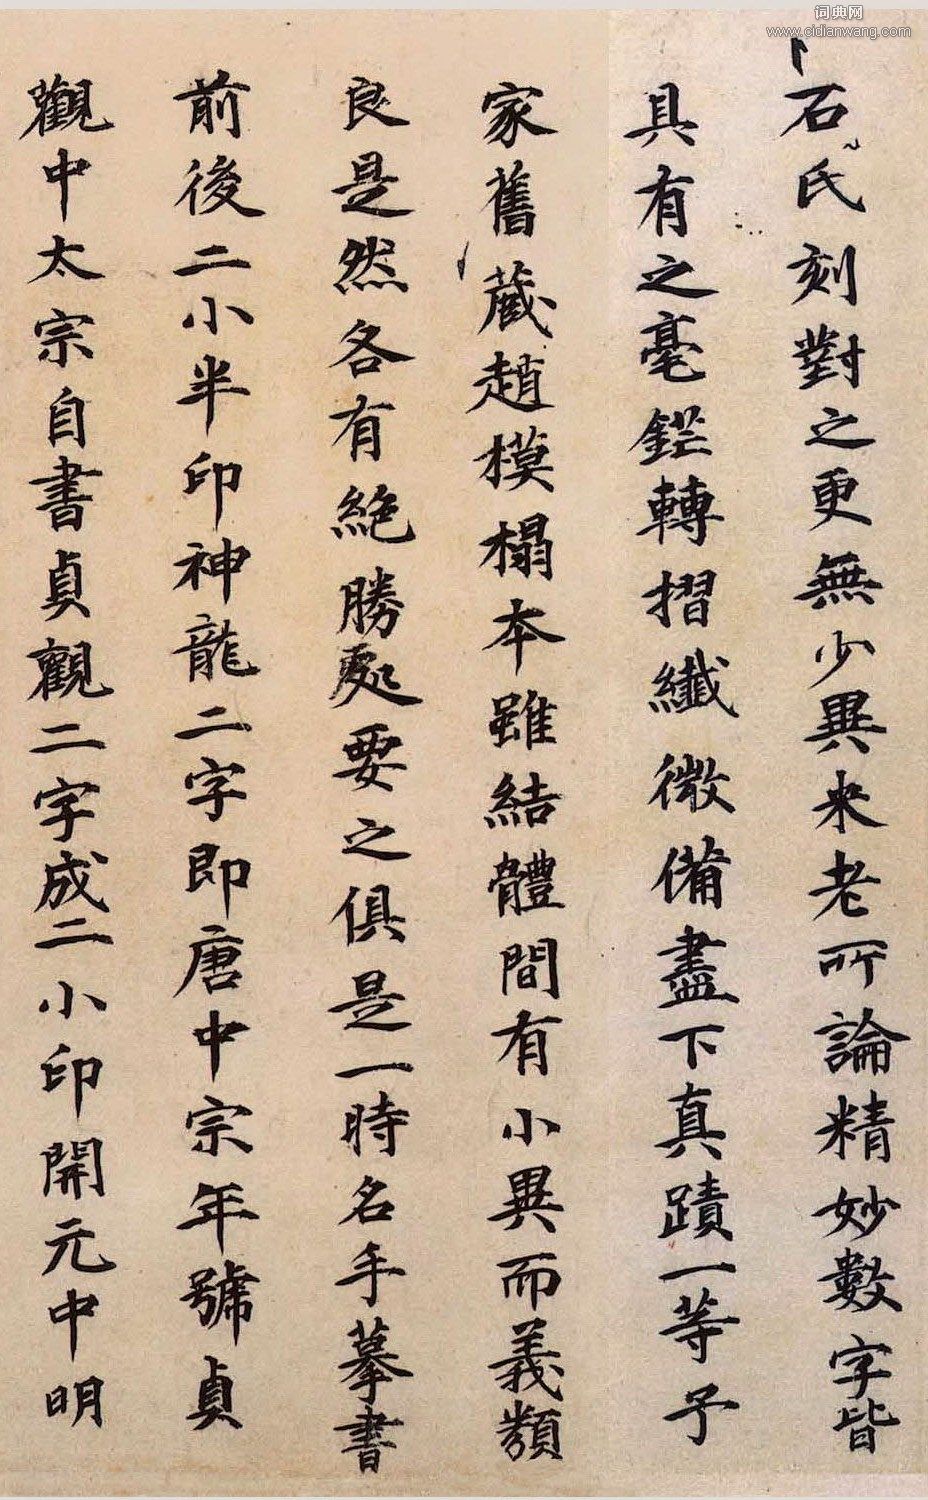 词典网
www.cidianwang.com
石氏刻對之更無少異來老所論精妙數字皆
具有之毫鋩轉摺纖微備盡下真蹟一等予
家舊蔵趙模榻本雖結體間有小異而義類
良是然各有絶勝處要之俱是一時名手摹書
前後二小半印神龍二字即唐中宗年號貞
觀中太宗自書貞觀二字成二小印開元中明